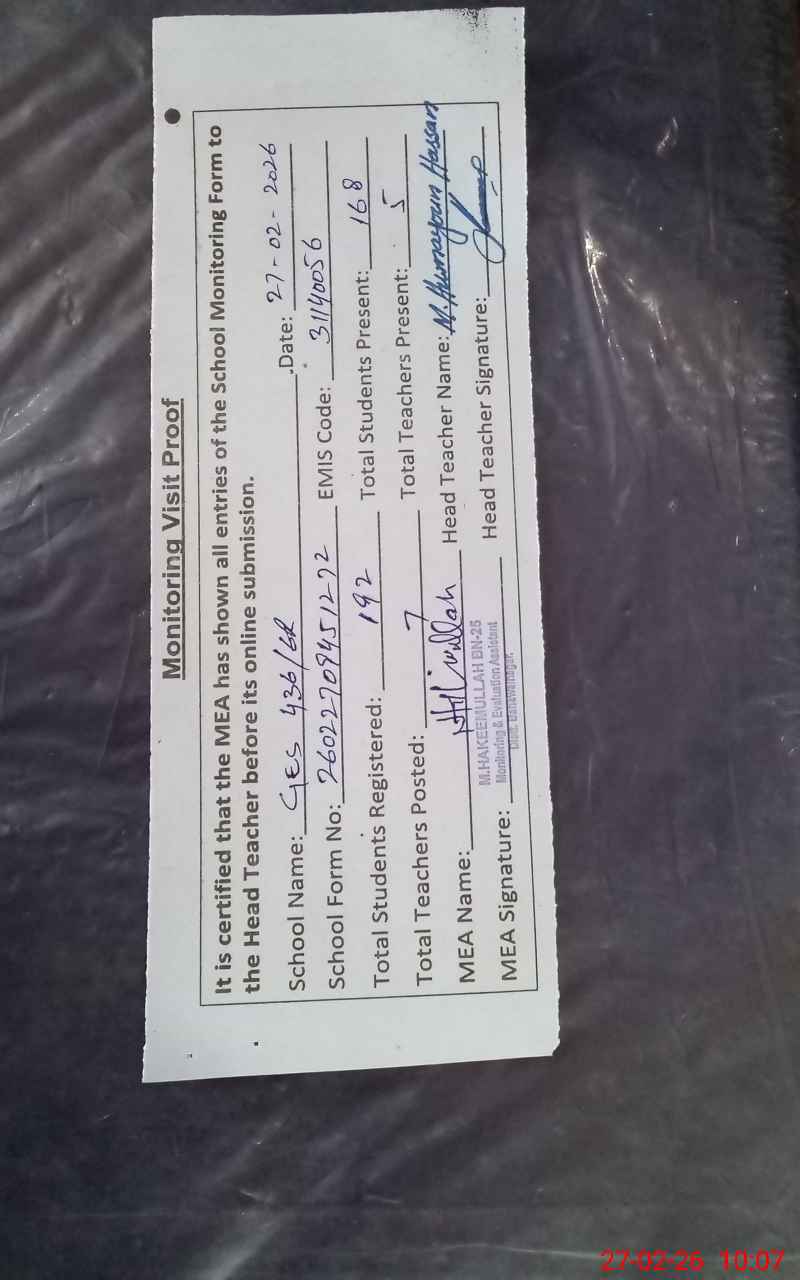 Monitoring Visit Proof
It is certified that the MEA has shown all entries of the School Monitoring Form to
the Head Teacher before its online submission.
School Name: GES 436/6R Date: 27-02-2026
School Form No: 26022709451272 EMIS Code: 31140056
Total Students Registered: 192 Total Students Present: 168
Total Teachers Posted: 7 Total Teachers Present: 5
MEA Name: Head Teacher Name: M. Humayoun Hassan
M.HAKEEMULLAH BN-25
Monitoring & Evaluation Assistant
Distt. Bahawalnagar.
MEA Signature: Head Teacher Signature:
27-02-26 10:07